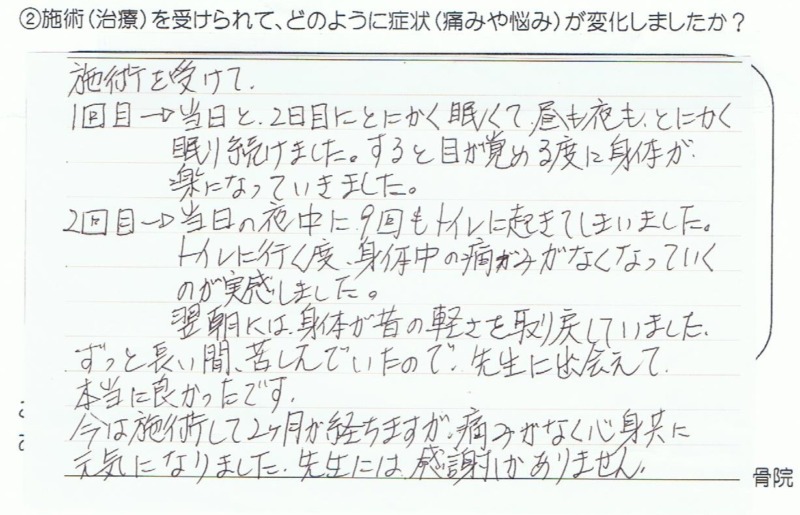 ②施術（治療）を受けられて、どのように症状（痛みや悩み）が変化しましたか？
施術を受けて、
1回目→当日と、2日目にとにかく眠くて、昼も夜も、とにかく
眠り続けました。すると目が覚める度に身体が、
楽になっていきました。
2回目→当日の夜中に、9回もトイレに起きてしまいました。
トイレに行く度、身体中の痛みがなくなっていく
のが実感しました。
翌朝には、身体が昔の軽さを取り戻していました、
ずっと長い間、苦しんでいたので、先生に出会えて、
本当に良かったです。
今は施術して2ヶ月が経ちますが、痛みがなく心身共に
元気になりました、先生には、感謝しかありません、
骨院